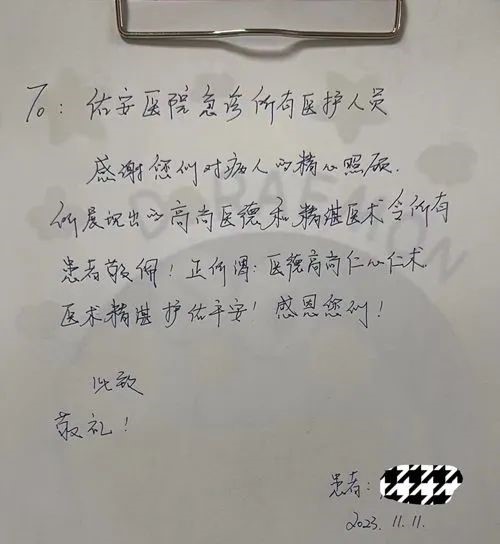 To: 佑安医院急诊所有医护人员
感谢您们对病人的精心照顾.
所展现出的高尚医德和精湛医术令所有
患者敬佩！正所谓：医德高尚仁心仁术
医术精湛护佑平安！感恩您们！
此致
敬礼！
患者：
2023.11.11.
DORAEMON